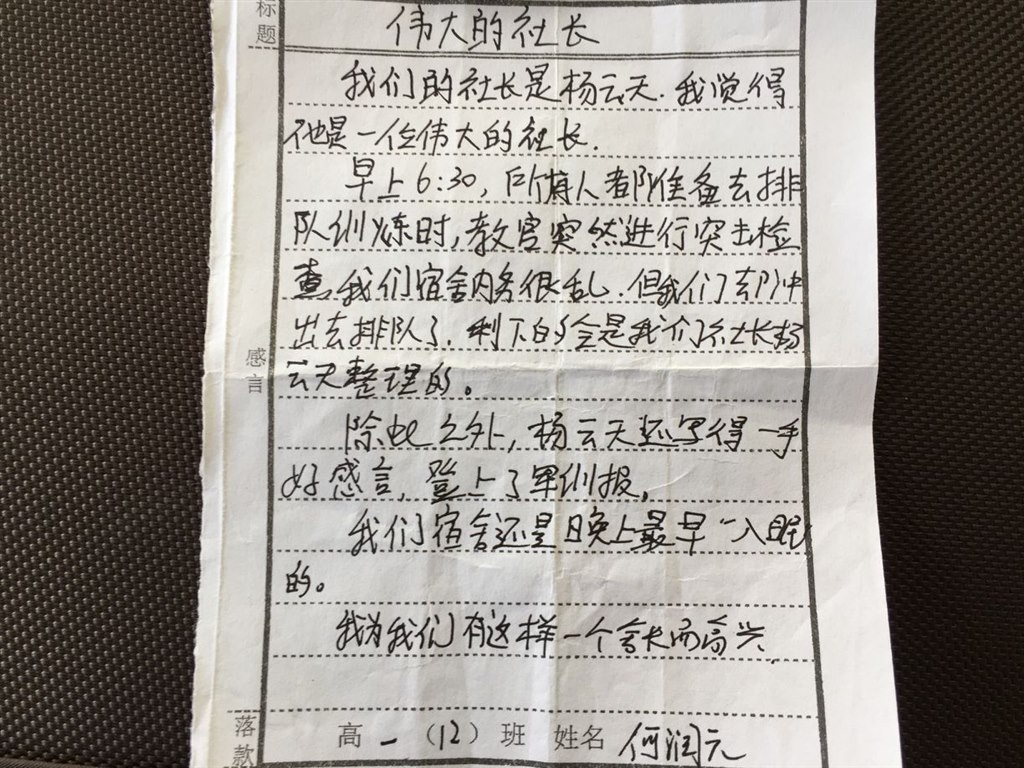 标题 伟大的社长
我们的社长是杨云天.我觉得
他是一位伟大的社长.
早上6:30,所有人都准备去排
队训练时,教官突然进行突击检
查,我们宿舍内务很乱.但我们都冲
出去排队了.剩下的全是我们社长杨
感言
云天整理的。
除此之外,杨云天还写得一手
好感言,登上了军训报,
我们宿舍还是晚上最早入眠
的。
我为我们有这样一个舍长而高兴.
落款 高一(12)班 姓名 何润元